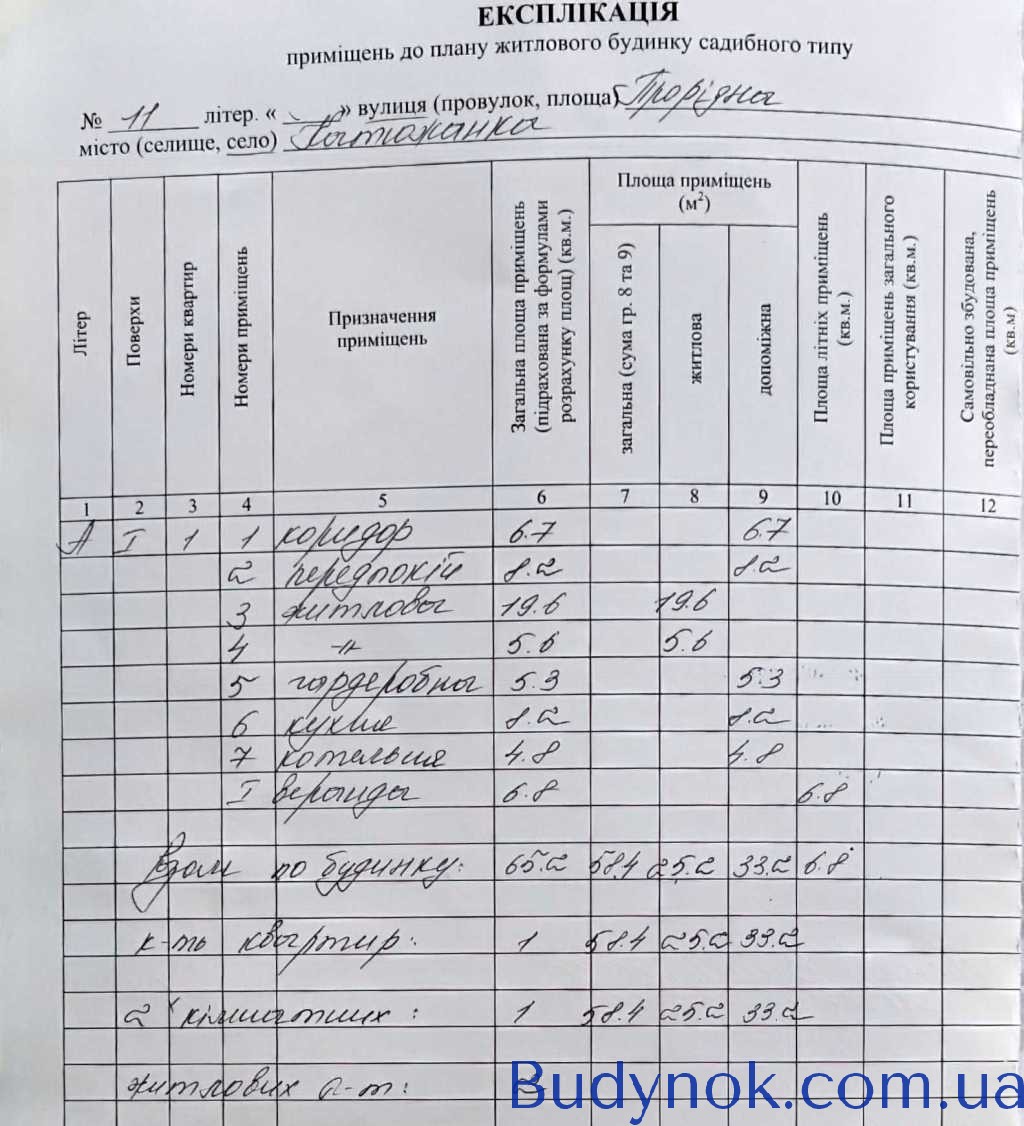 ЕКСПЛІКАЦІЯ
приміщень до плану житлового будинку садибного типу
№ 11 літер. « » вулиця (провулок, площа) Прорізна
місто (селище, село)
Літер
Поверхи
Номери квартир
Номери приміщень
Призначення приміщень
Загальна площа приміщень (підрахована за формулами розрахунку площ) (кв.м.)
Площа приміщень (м²)
загальна (сума гр. 8 та 9)
житлова
допоміжна
Площа літніх приміщень (кв.м.)
Площа приміщень загального користування (кв.м.)
Самовільно збудована, переобладнана площа приміщень (кв.м)
1 2 3 4 5 6 7 8 9 10 11 12
А I 1 1 коридор 6.7 6.7
2 передпокій 8.2 8.2
3 житлова 19.6 19.6
4 -//- 5.6 5.6
5 гардеробна 5.3 5.3
6 кухня 8.2 8.2
7 котельня 4.8 4.8
I веранда 6.8 6.8
Взам по будинку: 65.2 58.4 25.2 33.2 6.8
к-ть квартир: 1 58.4 25.2 33.2
2 х кімнатних: 1 58.4 25.2 33.2
житлових к-т: 2
Budynok.com.ua